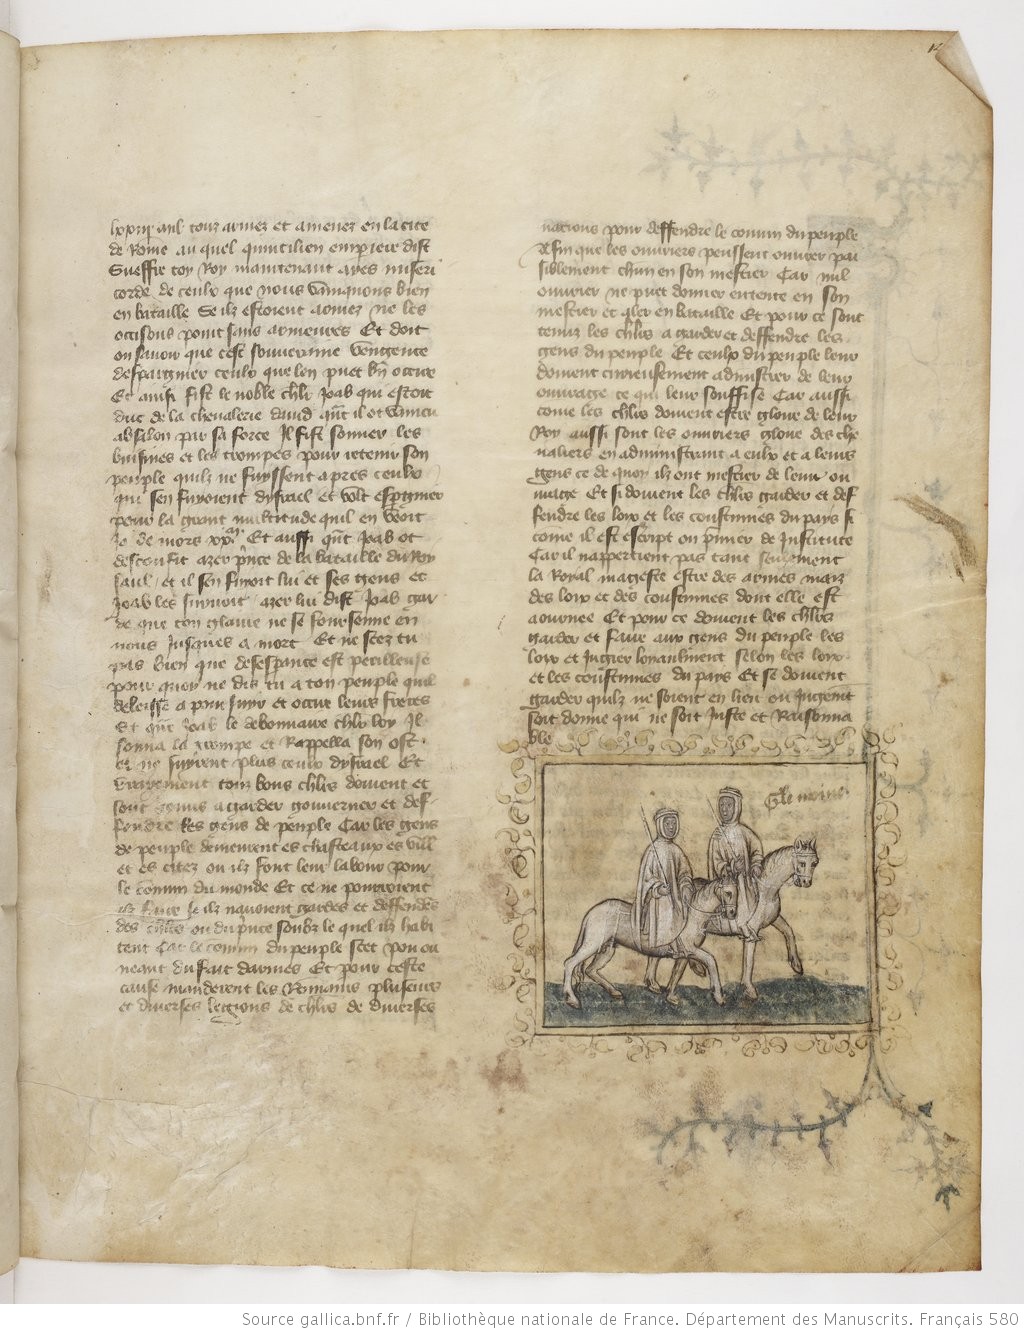 de Rome au quel quintilien emperiere dist
Sueffre toy Roy maintenant aies miseri
corde de ceulx que nous vainquons bien
en bataille Se ilz estoient armez ne les
occisons point sans armeures Et doit
on savoir que cest souveraine vengence
despargnier ceulx que len puet bn occire
Et ainsi fist le noble chlr Joab qui estoit
duc de la chevalerie david qnt il ot vaincu
absalon par sa force Il fist sonner les
buisines et les trompes pour retenir son
peuple quilz ne fuyssent apres ceulx
qui sen fuyoient disrael et volt espargnier
pour la grant multitude quil en veoit
Et aussi qnt Joab ot
desconfit azer pnce de la bataille du Roy
saul et il sen fuioit lui et ses gens et
Joab les suyvoit azer lui dist Joab gar
de que ton glaive ne se forsenne en
nous jusques a mort Et ne scez tu
pas bien que desesperance est perilleuse
pour quoy ne dis tu a ton peuple quil
delaisse a pour suyr et occire leurs freres
Et qnt Joab le debonnaire chlr loy Il
sonna la trompe et Rappella son ost
et ne suyrent plus ceulx disrael Et
vrayement touz bons chlrs doivent et
sont tenus a garder gouverner et def
fendre les gens de peuple Car les gens
de peuple demeurent es chasteaux es vill
et es citez ou ilz font leur labour pour
le comun du monde Et ce ne pourroient
ilz faire se ilz navoient gardes et deffendes
des chlrs ou du pnce soubz le quel ilz habi
tent Car le comun du peuple scet pou ou
neant du fait darmes Et pour ceste
cause manderent les Romains plusieurs
et diverses legions de chlrs de diverses
nacions pour deffendre le comun du peuple
Afin que les ouvriers peussent ouvrer pai
siblement chun en son mestier Car nul
ouvrier ne puet donner entente en son
mestier et aler en bataille Et pour ce sont
tenuz les chlrs a garder et deffendre les
gens du peuple Et ceulx du peuple leur
doivent curieusement admistrer de leur
ouvrage ce qui leur souffise Car aussi
come les chlrs doivent estre gloire de leur
Roy aussi sont les ouvriers gloire des che
valiers en administrant a eulx et a leurs
gens ce de quoy ilz ont mestier de leur ou
vrage Et si doivent les chlrs garder et def
fendre les loix et les coustumes du pays si
come il est escript ou pmier de Institute
Car il nappertient pas tant seulement
la Royal mageste estre des armes maiz
des loix et des coustumes dont elle est
aournee Et pour ce doivent les chlrs
garder et faire aux gens du peuple les
loix et Jugier loyaulment selon les loix
et les coustumes du pays Et se doivent
garder quilz ne soient en lieu ou Jugent
soit donne qui ne soit Juste et Raisonna
ble
Source gallica.bnf.fr / Bibliothèque nationale de France. Département des Manuscrits. Français 580